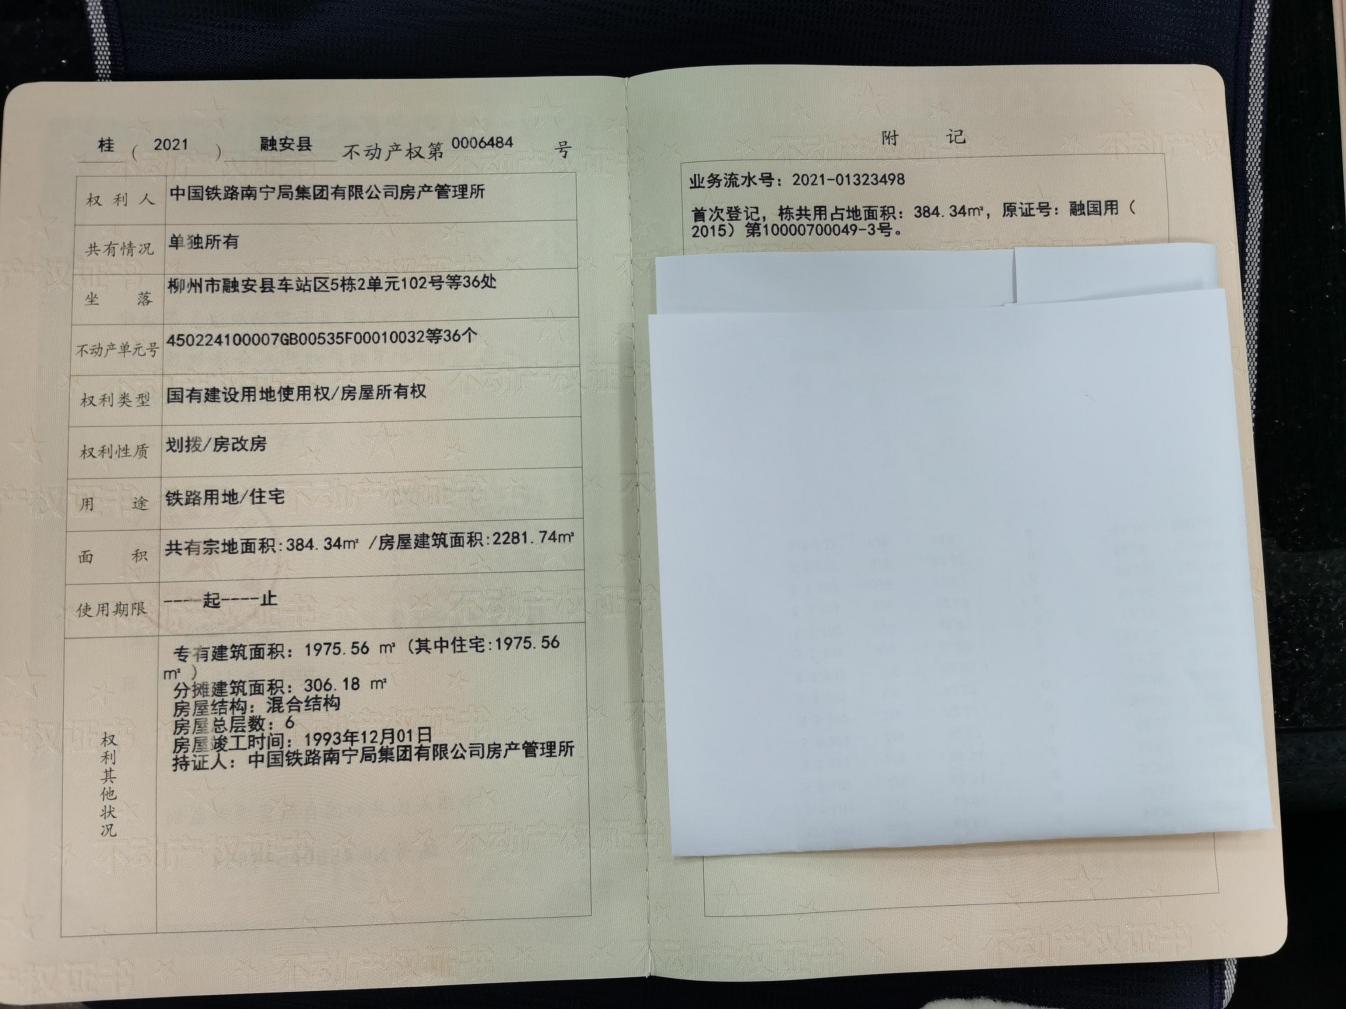 桂 ( 2021 ) 融安县 不动产权第 0006484 号
权利人 中国铁路南宁局集团有限公司房产管理所
共有情况 单独所有
坐落 柳州市融安县车站区5栋2单元102号等36处
不动产单元号 450224100007GB00535F00010032等36个
权利类型 国有建设用地使用权/房屋所有权
权利性质 划拨/房改房
用途 铁路用地/住宅
面积 共有宗地面积:384.34㎡ /房屋建筑面积:2281.74㎡
使用期限 ----起----止
权利其他状况
专有建筑面积：1975.56 ㎡ (其中住宅:1975.56
㎡ )
分摊建筑面积：306.18 ㎡
房屋结构：混合结构
房屋总层数：6
房屋竣工时间：1993年12月01日
持证人：中国铁路南宁局集团有限公司房产管理所
附记
业务流水号：2021-01323498
首次登记，栋共用占地面积：384.34㎡，原证号：融国用（
2015）第10000700049-3号。